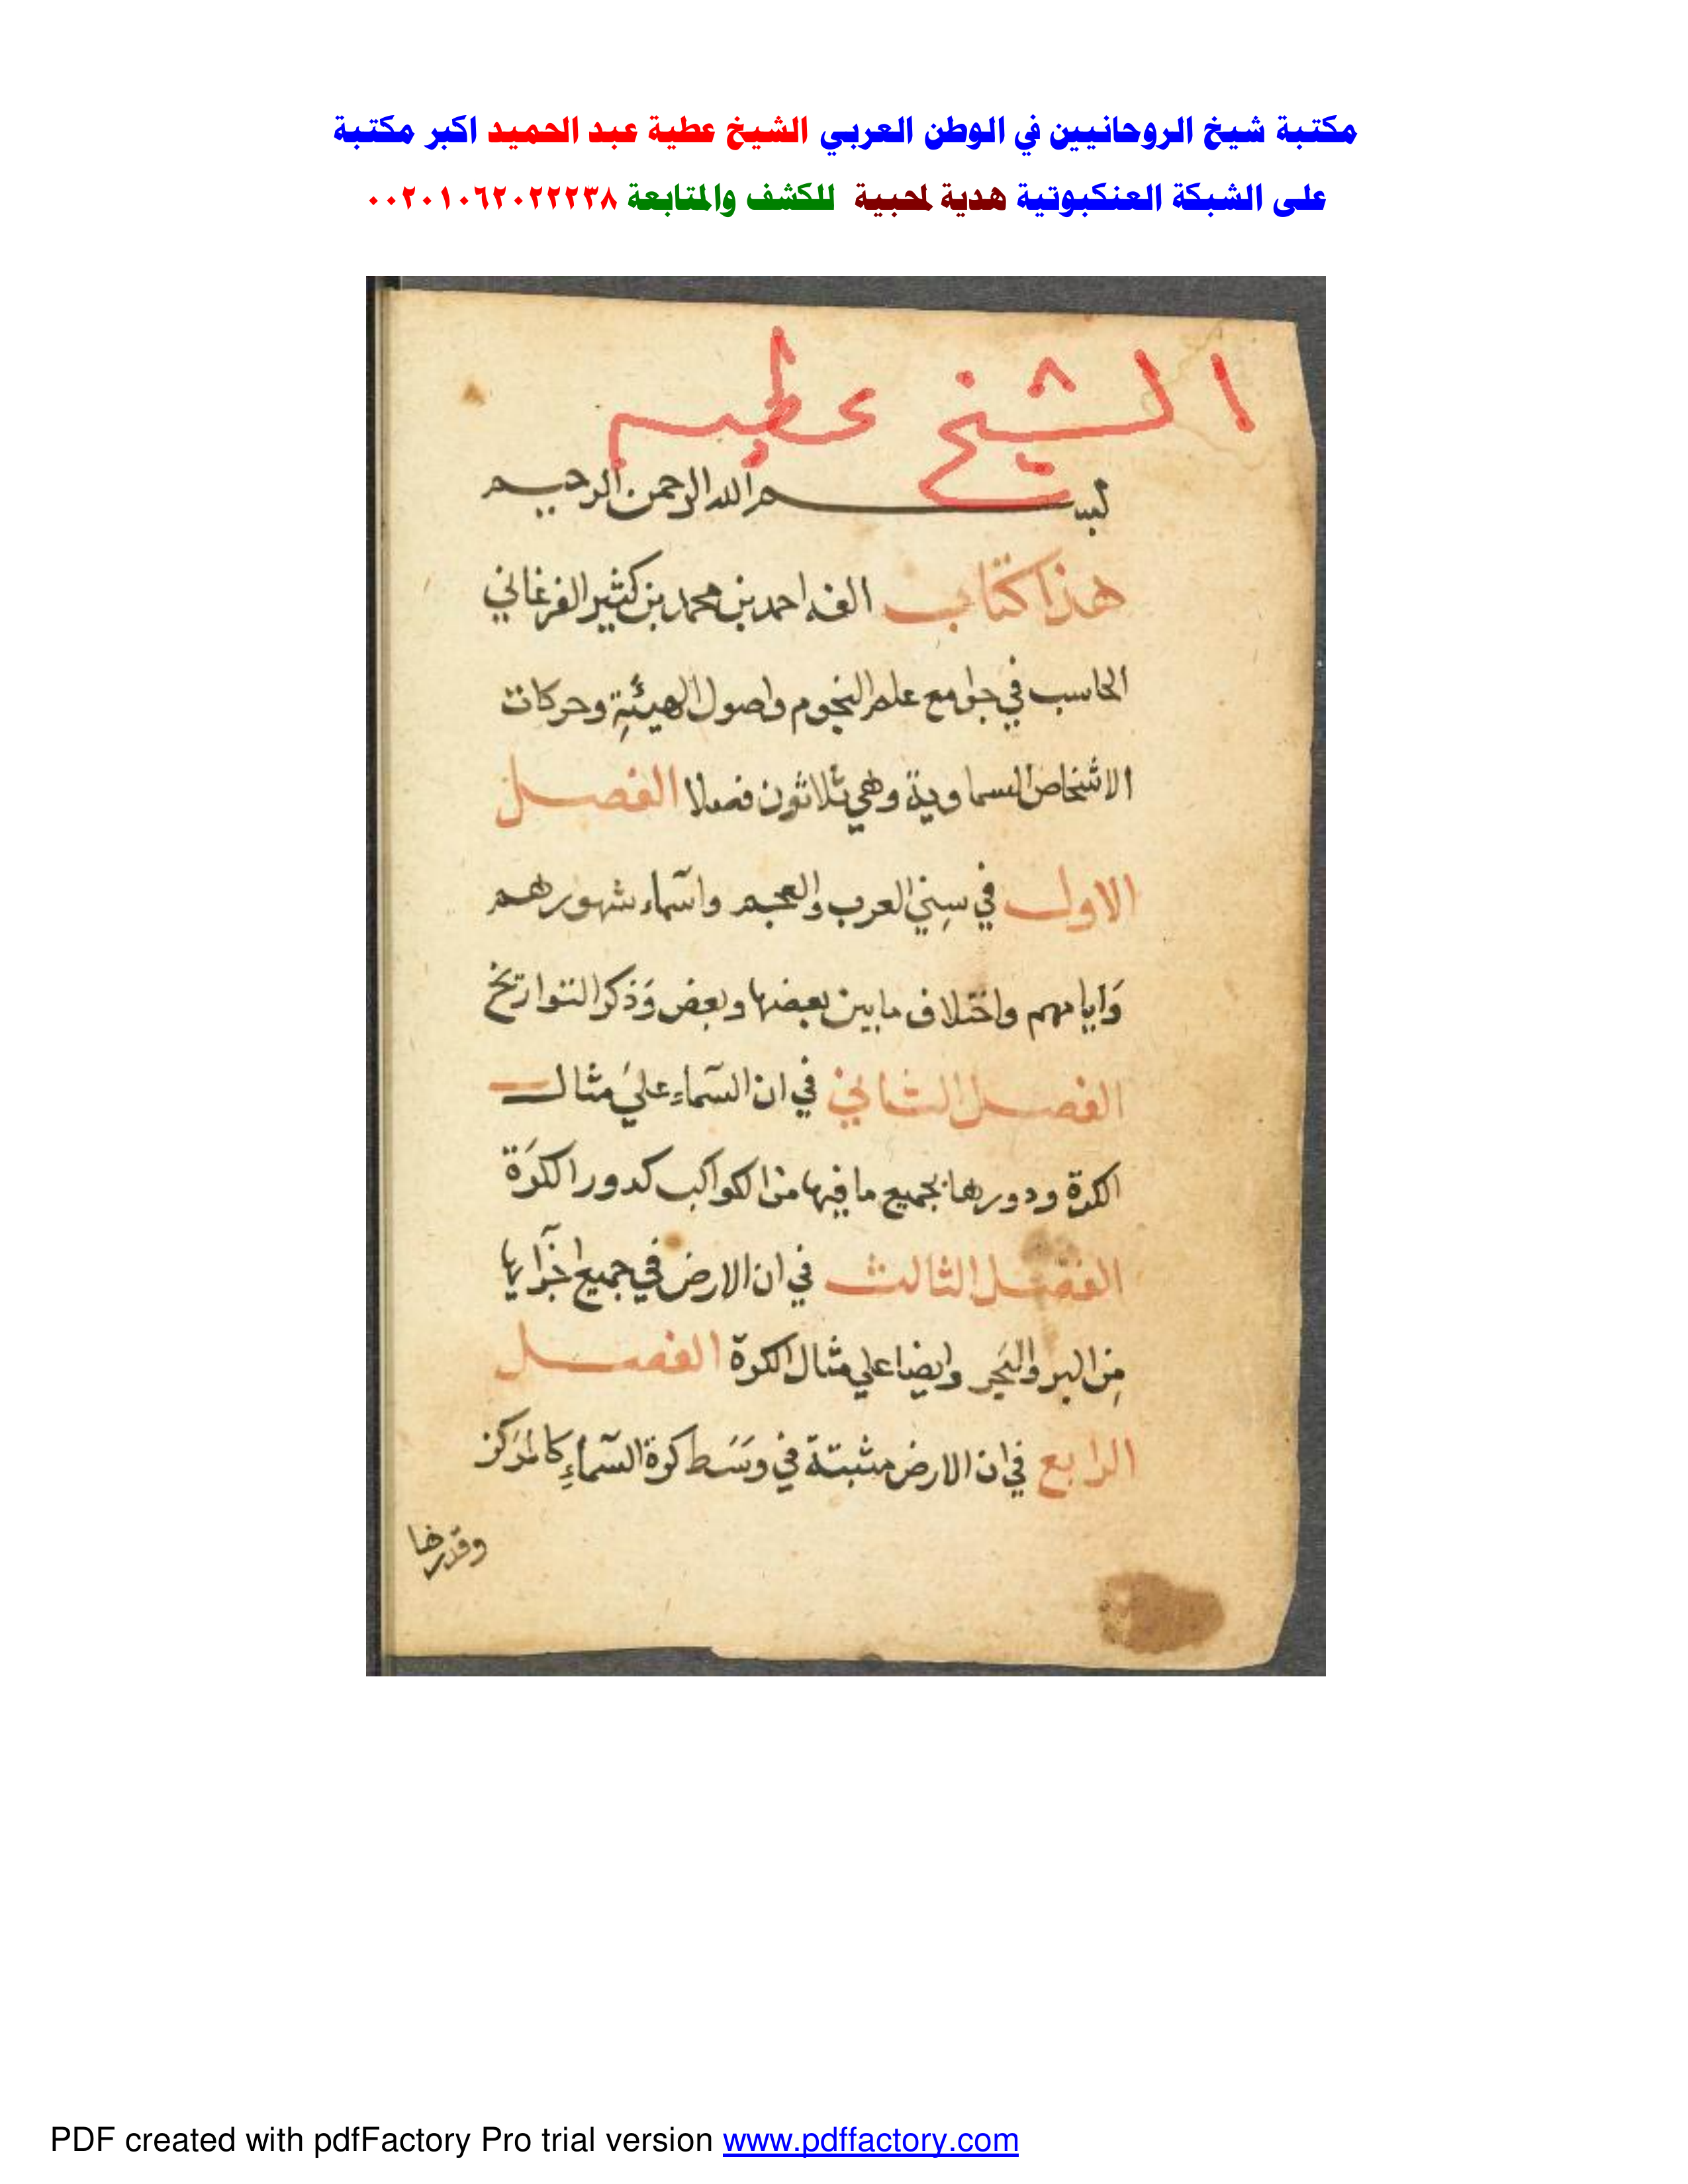 مكتبة شيخ الروحانيين في الوطن العربي الشيخ عطية عبد الحميد اكبر مكتبة
على الشبكة العنكبوتية هدية لمحبية للكشف والمتابعة ٠٠٢٠١٠٦٢٠٢٢٢٣٨
الشيخ عطيه
بسم الله الرحمن الرحيم
هذا كتاب الفه احمد بن محمد بن كثير الفرغاني
الحاسب في جوامع علم النجوم واصول الهيئةِ وحركات
الاشخاص السماوية وهي ثلاثون فصلا الفصل
الاول في سِني العرب والعجم واسمآء شهورهم
وَايامهم واختلاف مابين بعضها وبعض وَذكر التواريخ
الفصل الثاني في ان السّمآءِ عليَ مثال
الكرة ودورها بجميع ما فيها من الكواكب كدور الكرَة
الفصل الثالث في ان الارض في جميع اجزآيها
مِن البر والبَحر وايضا علي مثال الكرة الفصل
الرابع في ان الارض مثبتة في وسَط كرة السّمآءِ كالمرَكز
وقدرها
PDF created with pdfFactory Pro trial version www.pdffactory.com